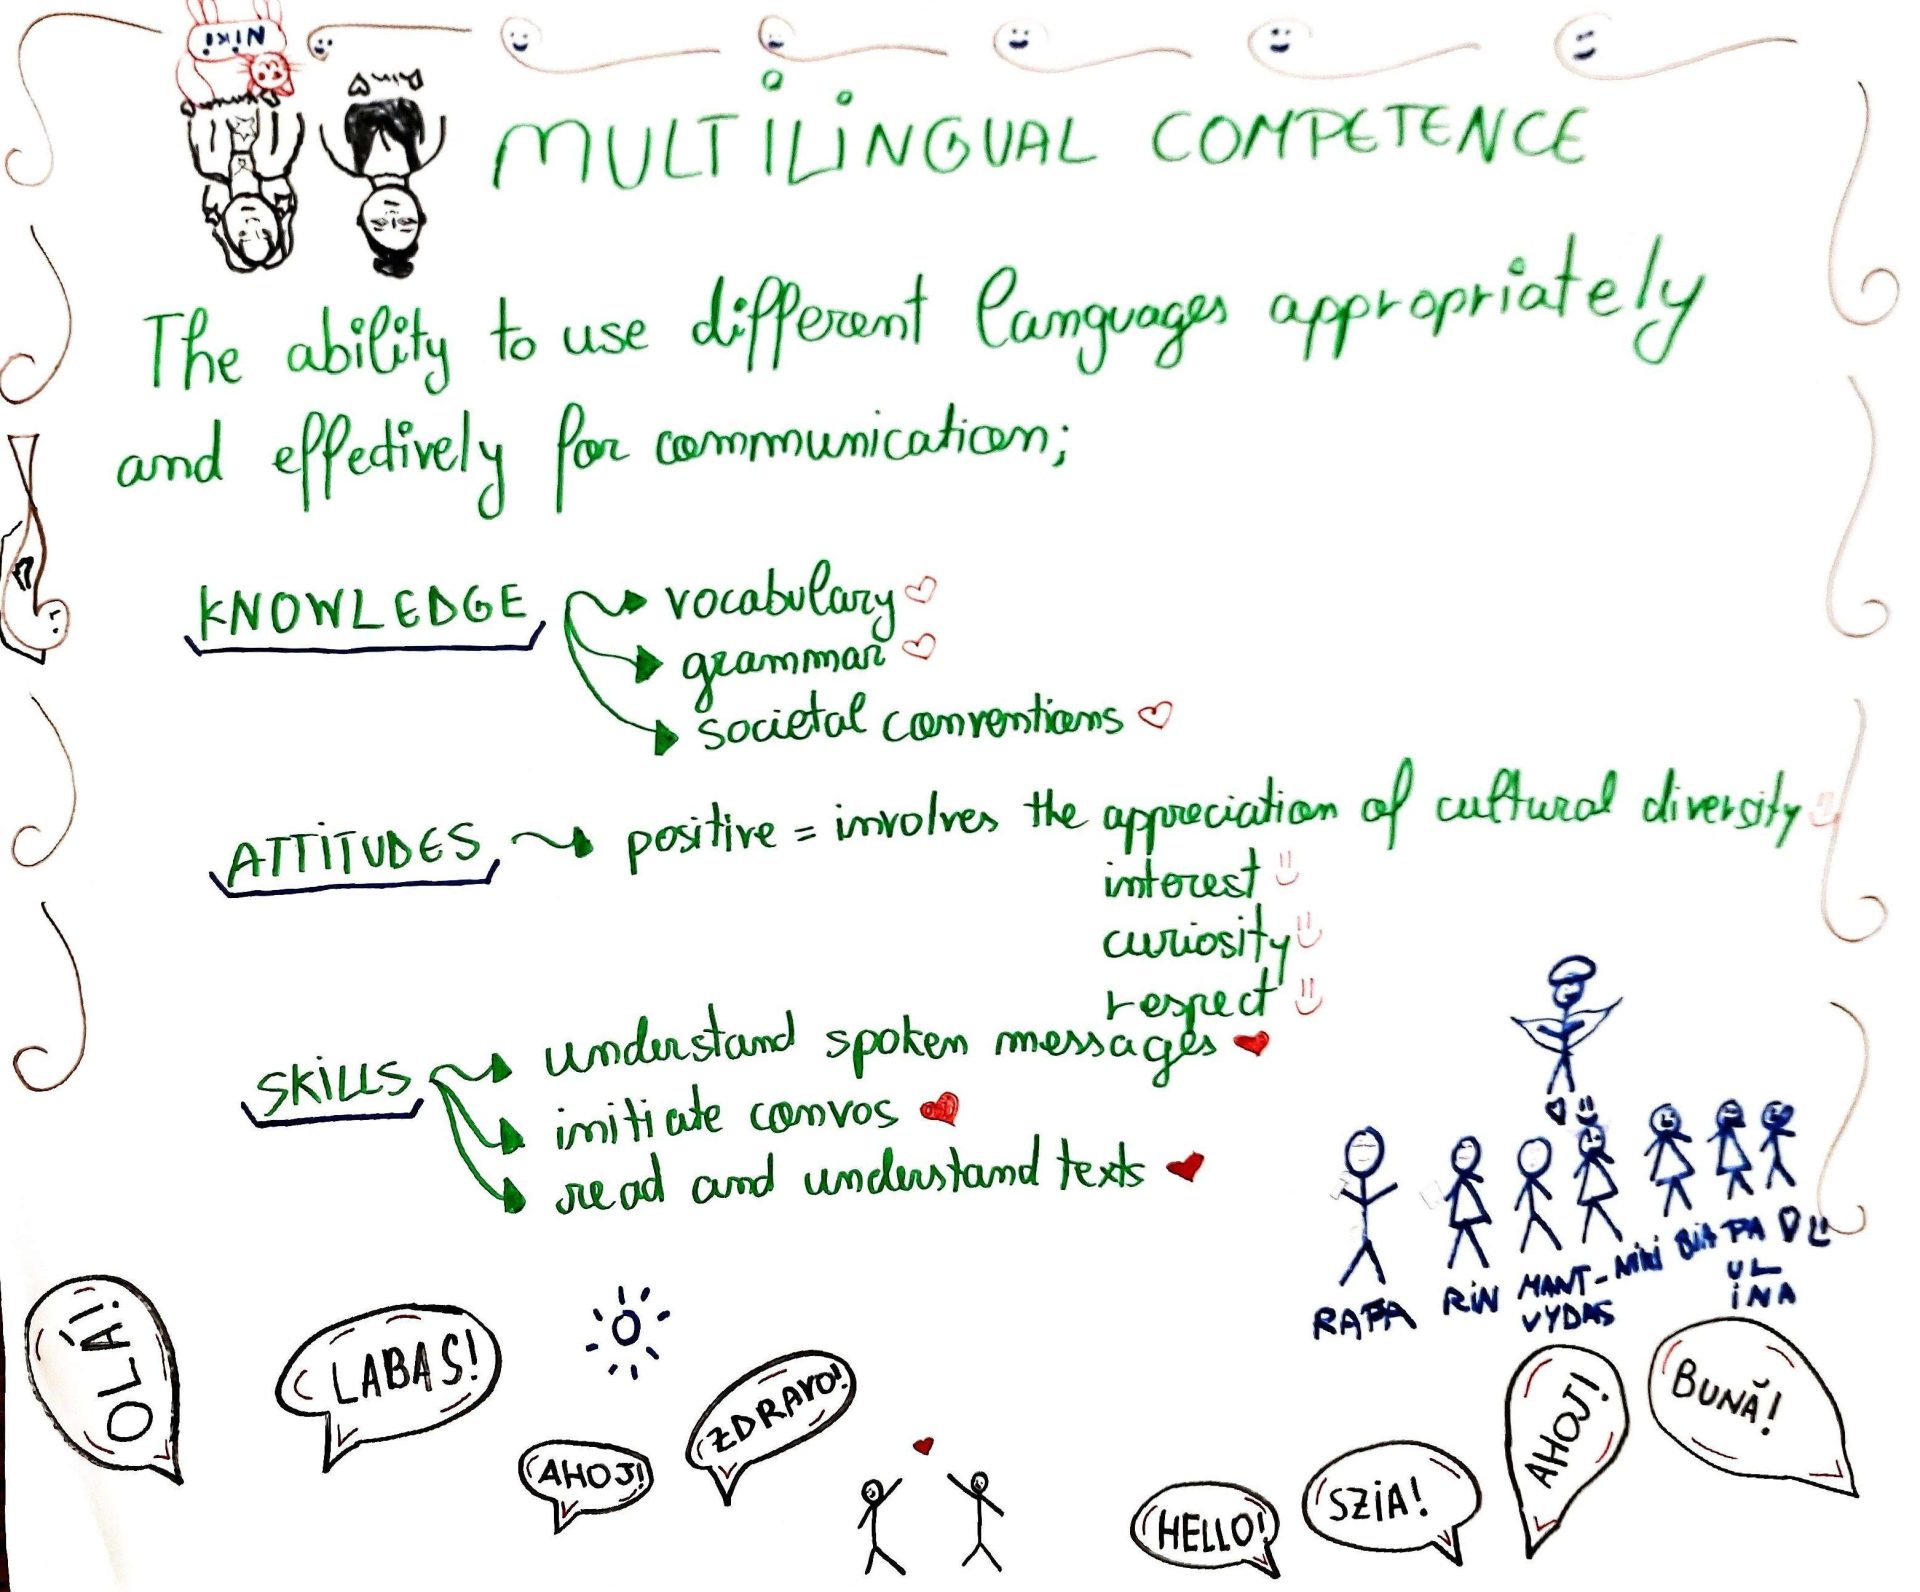 NiKi
Rin
MULTiLiNGUAL COMPETENCE
The ability to use different languages appropriately
and effectively for communication;
KNOWLEDGE
vocabulary
grammar
societal conventions
ATTiTUDES
positive = involves the appreciation of cultural diversity
interest
curiosity
respect
SKiLLS
understand spoken messages
initiate convos
read and understand texts
RAFA
RiN
MANT-
VYDAS
Niki
BiA
PA
UL
iNA
OLÁ!
LABAS!
AHOJ!
ZDRAVO!
HELLO!
SZiA!
AHOJ!
BUNĂ!